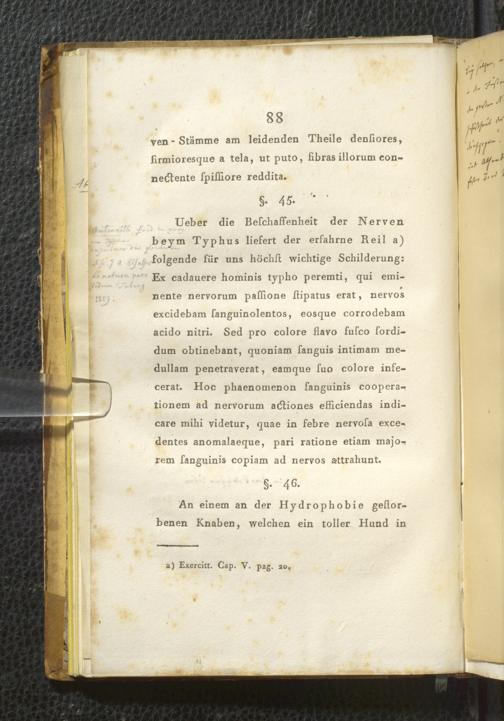 88
ven-Stämme am leidenden Theile denſiores,
firmioresque a tela, ut puto, fibras illorum con-
nectente ſpiſſiore reddita.
§. 45.
Ueber die Beſchaffenheit der Nerven
beym Typhus liefert der erfahrne Reil a)
folgende für uns höchſt wichtige Schilderung:
Ex cadauere hominis typho peremti, qui emi-
nente nervorum paſſione ſtipatus erat, nervos
excidebam ſanguinolentos, eosque corrodebam
acido nitri. Sed pro colore flavo fuſco ſordi-
dum obtinebant, quoniam ſanguis intimam me-
dullam penetraverat, eamque ſuo colore infe-
cerat. Hoc phaenomenon ſanguinis coopera-
tionem ad nervorum actiones efficiendas indi-
care mihi videtur, quae in febre nervoſa exce-
dentes anomalaeque, pari ratione etiam majo-
rem ſanguinis copiam ad nervos attrahunt.
§. 46.
An einem an der Hydrophobie geſtor-
benen Knaben, welchen ein toller Hund in
a) Exercitt. Cap. V. pag. 20.